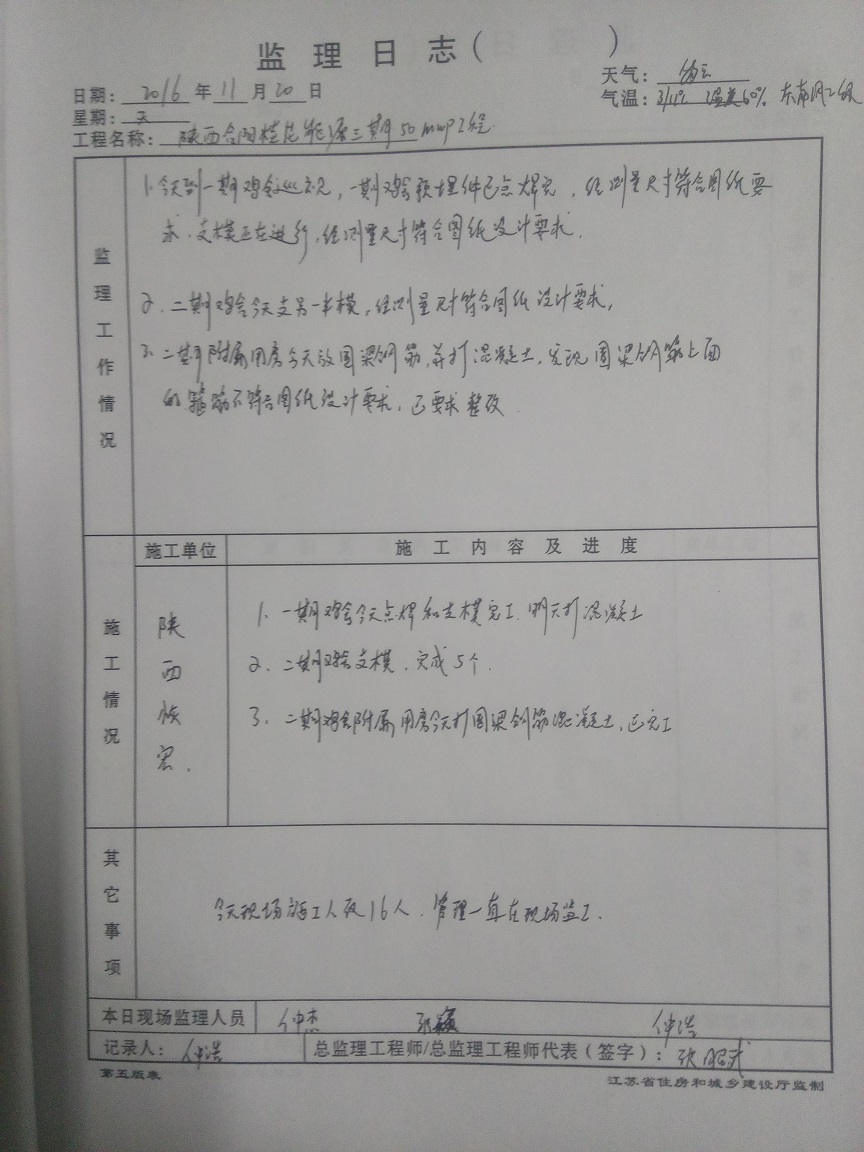 监理日志( )
日期: 2016 年 11 月 20 日
天气: 多云
星期: 天
气温: 湿度60% 东南风2级
工程名称: 陕西合阳桂花能源三期50MWP工程
监理工作情况
1.今天到一期鸡舍巡视,一期鸡舍预埋件已点焊完,经测量尺寸符合图纸要
求.支模正在进行,经测量尺寸符合图纸设计要求.
2.二期鸡舍今天支另一半模,经测量尺寸符合图纸设计要求,
3.二期附属用房今天放圈梁钢筋,并打混凝土,发现圈梁钢筋上面
的箍筋不符合图纸设计要求,已要求整改
施工情况
施工单位
施工内容及进度
陕西
1.一期鸡舍今天点焊和支模完工.明天打混凝土
2、二期鸡舍支模.完成5个.
3、二期鸡舍附属用房今天打圈梁钢筋混凝土,已完工
其它事项
今天现场施工人员16人.管理一直在现场监工.
本日现场监理人员 仲杰 仲浩
记录人: 仲浩
总监理工程师/总监理工程师代表(签字):
第五版表
江苏省住房和城乡建设厅监制